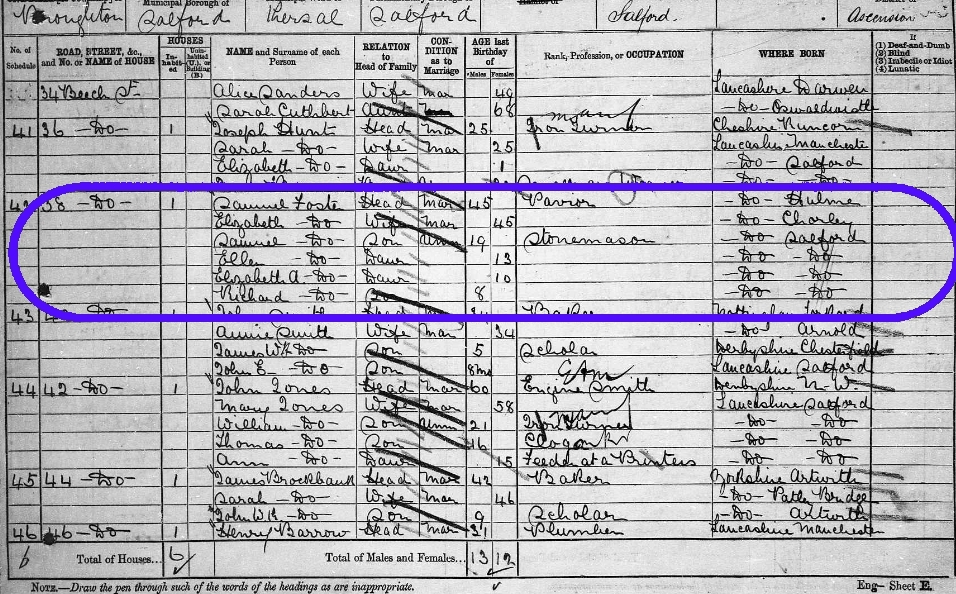 Broughton Salford Kersal Salford Salford. Ascension
Municipal Borough of
No. of Schedule ROAD, STREET, &c., and No. or NAME of HOUSE HOUSES Inhabited Uninhabited (U.), or Building (B.) NAME and Surname of each Person RELATION to Head of Family CONDITION as to Marriage AGE last Birthday of Males Females Rank, Profession, or OCCUPATION WHERE BORN If (1) Deaf-and-Dumb (2) Blind (3) Imbecile or Idiot (4) Lunatic
34 Beech St. Alice Sanders Wife Mar 49 Lancashire Darwen
Sarah Cuthbert Aunt 68 -Do- Oswaldtwistle
41 36 -Do- 1 Joseph Hunt Head Mar 25 Iron Turner Cheshire Runcorn
Sarah -Do- Wife Mar 25 Lancashire Manchester
Elizabeth -Do- Daur 1 -Do- Salford
42 38 -Do- 1 Samuel Foster Head Mar 45 Pavior -Do- Hulme
Elizabeth -Do- Wife Mar 45 -Do- Chorley
Samuel -Do- Son Unm 19 Stonemason -Do- Salford
Ellen -Do- Daur 13 -Do- -Do-
Elizabeth A -Do- Daur 10 -Do- -Do-
Richard -Do- Son 8 -Do- -Do-
43 -Do- 1 Head Mar Baker
Annie Smith Wife Mar 34 -Do- Arnold
James W H Do Son 5 Scholar Derbyshire Chesterfield
John E. -Do Son 8ms Lancashire Salford
44 42 -Do- 1 John Jones Head Mar 60 Engine Smith Denbyshire N. W
Mary Jones Wife Mar 58 Lancashire Salford
William -Do- Son Unm 21 Iron Turner -Do- -Do-
Thomas -Do- Son 16 -Do- -Do-
Ann -Do- Daur 15 Feeder at a Printers -Do- -Do-
45 44 -Do- 1 James Brockbank Head Mar 42 Baker Yorkshire
Sarah -Do- Wife Mar 46 -Do- Patley Bridge
John W -Do- Son 9 Scholar -Do-
46 46 -Do 1 Henry Barrow Head Mar 31 Plumber Lancashire Manchester
6 Total of Houses... 6 Total of Males and Females... 13 12
NOTE.—Draw the pen through such of the words of the headings as are inappropriate. Eng—Sheet E.